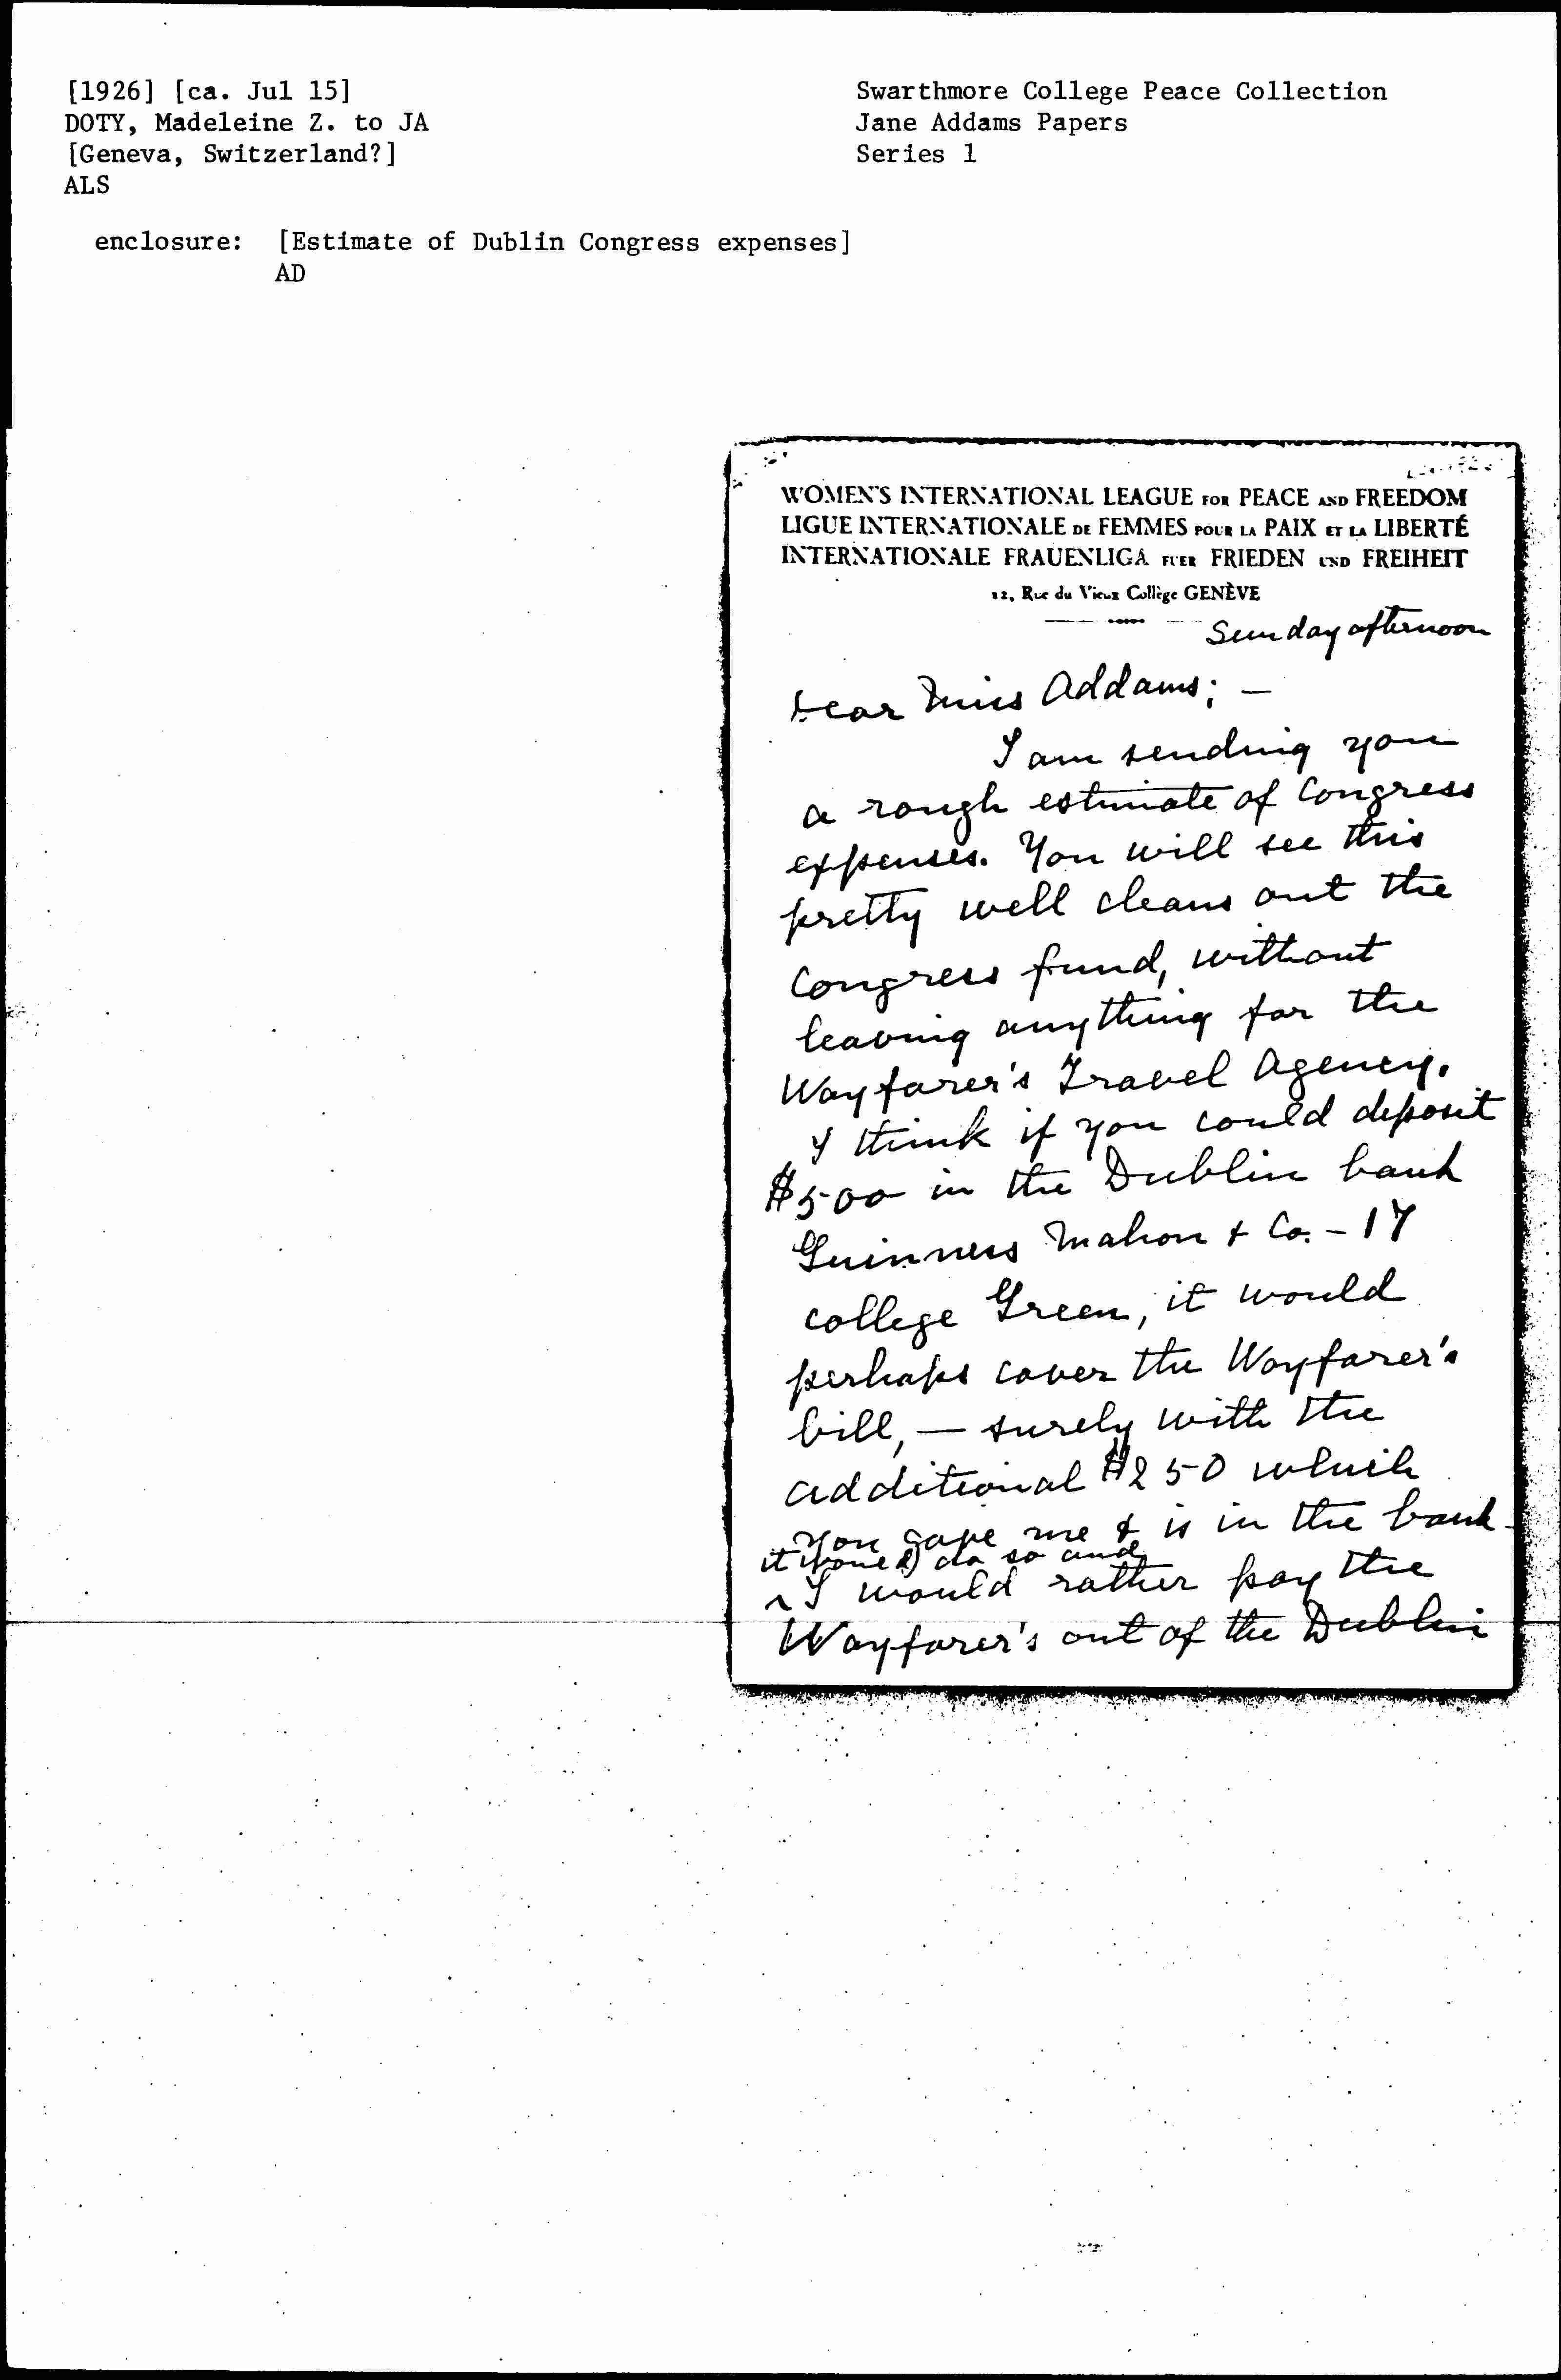 [1926] [ca. Jul 15]
DOTY, Madeleine Z. to JA
[Geneva, Switzerland?]
ALS
enclosure: [Estimate of Dublin Congress expenses]
AD
Swarthmore College Peace Collection
Jane Addams Papers
Series 1
WOMEN'S INTERNATIONAL LEAGUE FOR PEACE AND FREEDOM
LIGUE INTERNATIONALE DE FEMMES POUR LA PAIX ET LA LIBERTÉ
INTERNATIONALE FRAUENLIGA FUER FRIEDEN UND FREIHEIT
12, Rue du Vieux Collège GENÈVE
Sunday afternoon
Dear Miss Addams; —
I am sending you
a rough estimate of Congress
expenses. You will see this
pretty well cleans out the
Congress fund, without
leaving anything for the
Wayfarer's Travel Agency.
I think if you could deposit
$500 in the Dublin bank
Guinness Mahon + Co. - 17
College Green, it would
perhaps cover the Wayfarer's
bill, — surely with the
additional $250 which
you gave me & is in the bank
it would do so and
I would rather pay the
Wayfarer's out of the Dublin